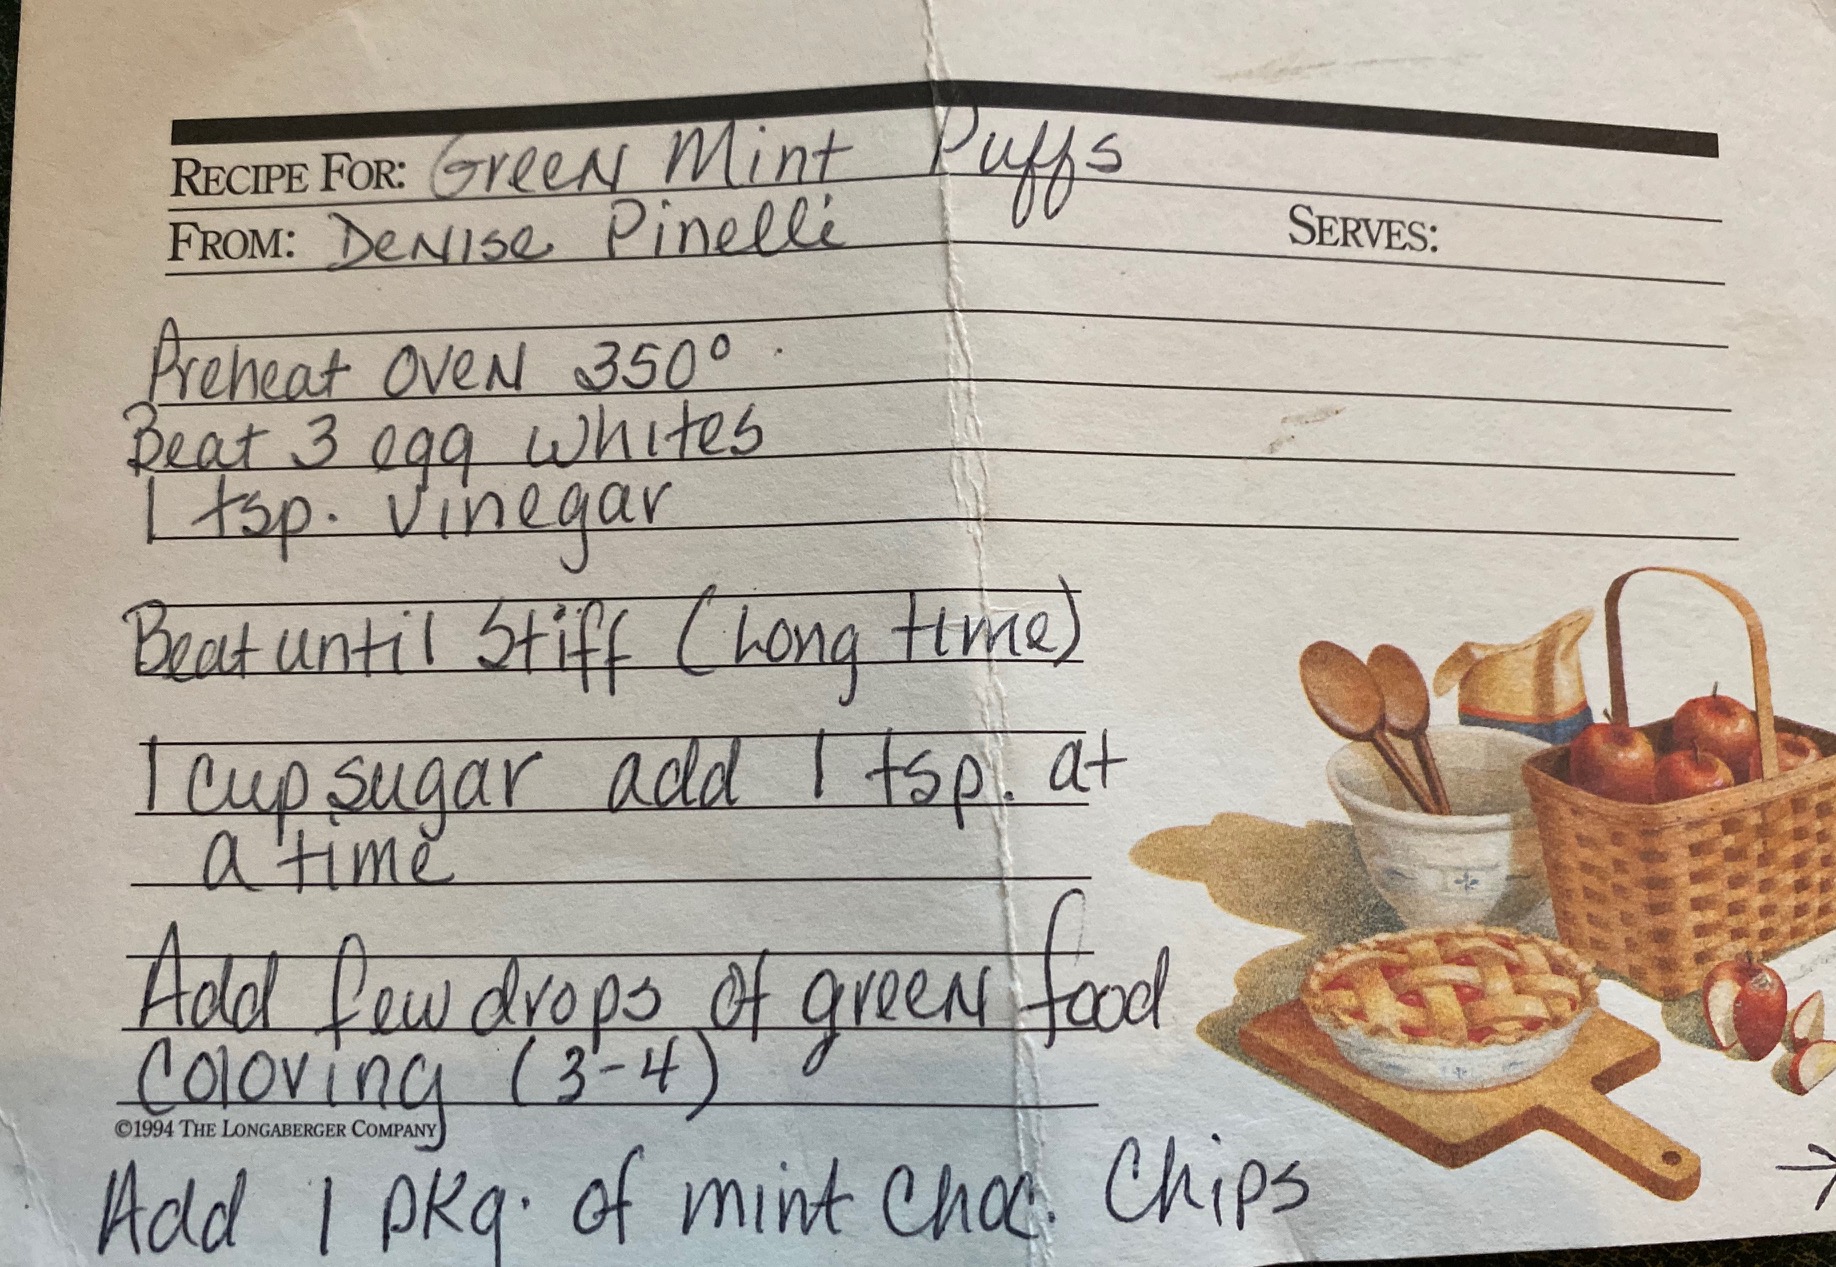 RECIPE FOR: Green Mint Puffs
FROM: Denise Pinelli SERVES:
Preheat oven 350°
Beat 3 egg whites
1 tsp. vinegar
Beat until stiff (Long time)
1 cup sugar add 1 tsp. at
a time
Add few drops of green food
coloring (3-4)
©1994 THE LONGABERGER COMPANY
Add 1 pkg. of mint choc. chips →